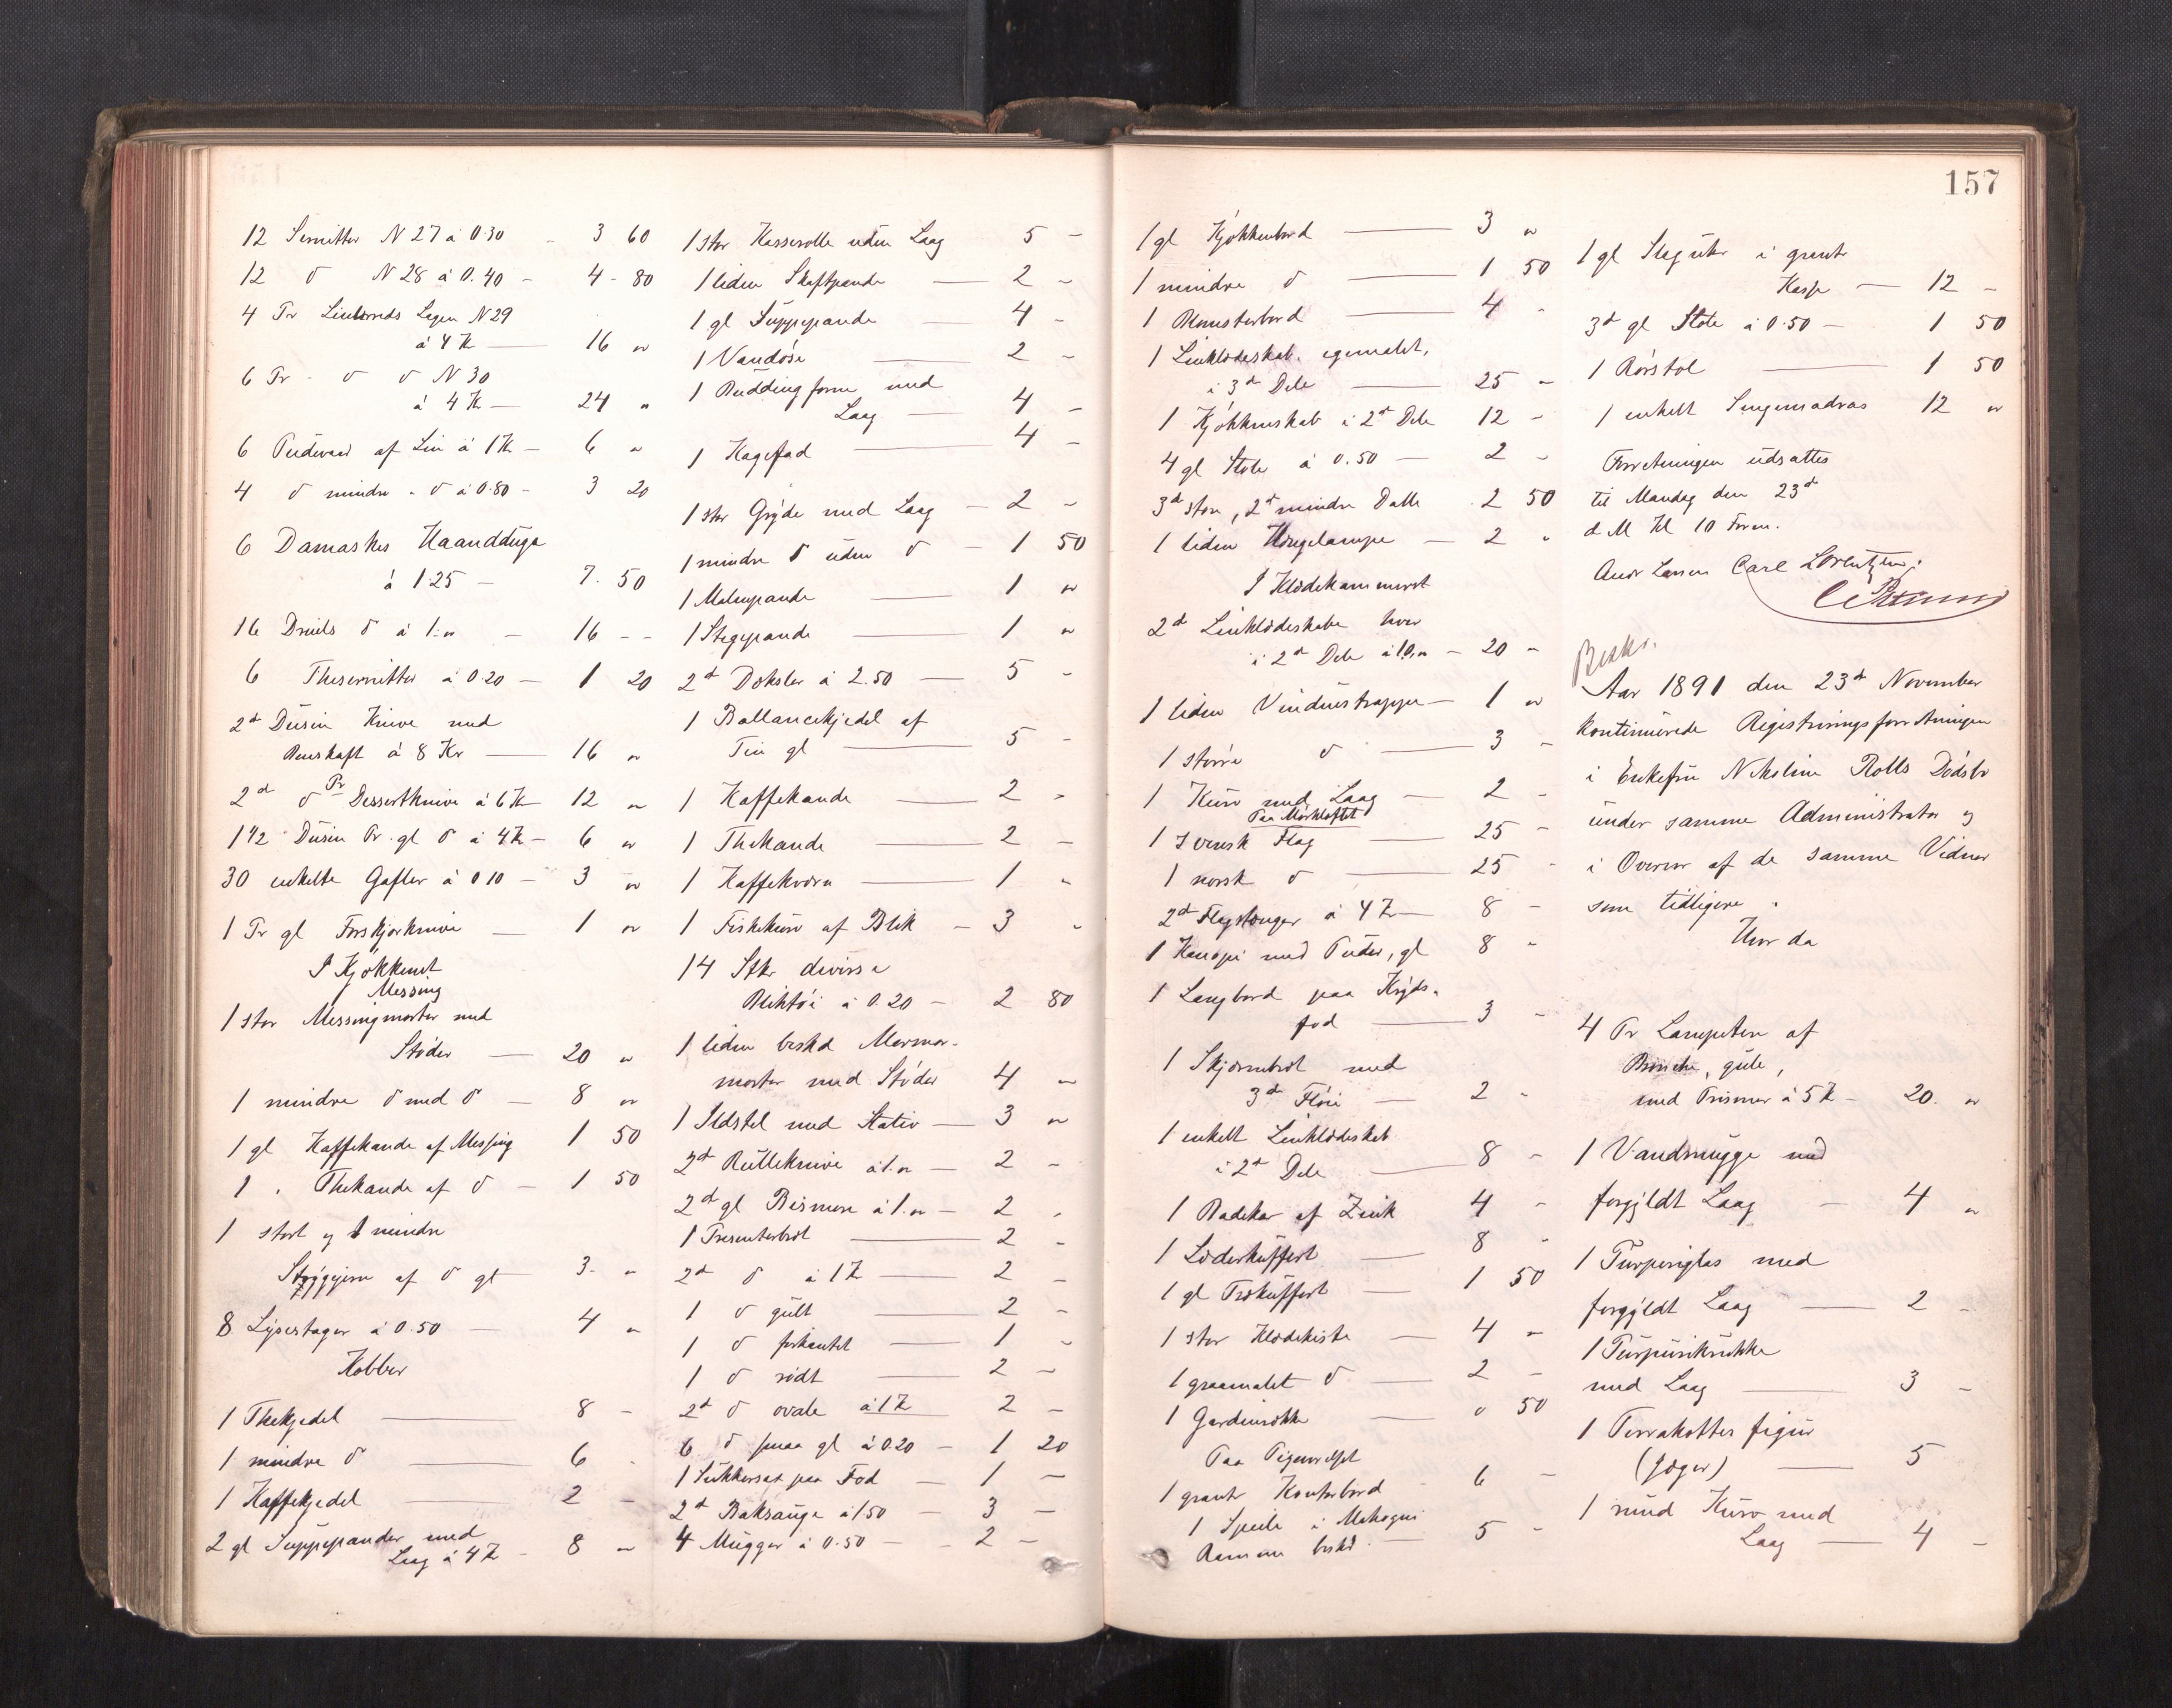 12 Servitter N 27 á 0.30 - 3 60
12 d N 28 á 0.40 - 4 - 80
4 Pr Linlerreds Lagen N 29
á 4 Kr — 16 "
6 Pr - d d N 30
á 4 Kr — 24 "
6 Pudevaar af Lin á 1 Kr - 6 "
4 d mindre - d á 0.80 - 3 20
6 Damaskes Haandduge
á 1.25 - 7. 50
16 Dreiels d á 1." - 16 - -
6 Theservitter á 0.20 - 1 20
2d Dusin Knive med
Benskaft á 8 Kr — 16 "
2d d Pr Dessertknive á 6 Kr 12 "
1 1/2 Dusin Pr. gl d á 4 Kr - 6 "
30 enkelte Gafler á 0 10 - 3 "
1 Pr gl Forskjærknive — 1 "
I Kjøkkenet
Messing
1 stor Messingmorter med
Støder — 20 "
1 mindre d med d — 8 "
1 gl Kaffekande af Messing 1 50
1 " Thekande af d - 1 50
1 stort og 1 mindre
Strygejern af d gl — 3 - "
8 Lysestager á 0.50 — 4 "
Kobber
1 Thekjedel — 8 -
1 mindre d — 6 -
1 Kaffekjedel — 2 -
2 gl Suppepander med
Laag á 4 Kr - 8 "
1 stor Kasserolle uden Laag 5 -
1 liden Skaftpande — 2 -
1 gl Suppepande — 4 -
1 Vandøse — 2 -
1 Buddingform med
Laag — 4 -
1 Kagefad — 4 -
1 stor Gryde med Laag - 2 -
1 mindre d uden d - 1 50
1 Melnepande — 1 "
1 Stegepande — 1 "
2d Dørslav á 2.50 — 5 -
1 Ballancekjedel af
Tin gl — 5 -
1 Kaffekande — 2 -
1 Thekande — 2 -
1 Kaffekværn — 1 -
1 Fiskekurv af Blik - 3 -
14 Stkr diverse
Bliktøi á 0.20 - 2 80
1 liden beskd Marmor-
morter med Støder 4 "
1 Ildstel med Stativ — 3 "
2d Rulleknive á 1." — 2 -
2d gl Bismere á 1." — 2 -
1 Presenterbræt — 2 -
2d d á 1 Kr — 2 -
1 d gult — 2 -
1 d firkantet — 1 -
1 d rødt — 2 -
2d d ovale á 1 Kr 2 -
6 d smaa gl á 0.20 - 1 20
1 Sukkersax paa Fod — 1 —
2d Baksauge á 1.50 — 3 —
4 Mugger á 0.50 — 2 —
157
1 gl Kjøkkenbord — 3 "
1 mindre d — 1 50
1 Blomsterbord — 4 -
1 Linklædeskab, egemalet,
i 3d Dele — 25 -
1 Kjøkkenskab i 2d Dele 12 -
4 gl Stole á 0.50 — 2 -
3d store, 2d mindre Balle 2 50
1 liden Hængelampe — 2 "
I Klædekammeret
2d Linklædeskabe hver
i 2d Dele á 10." - 20 -
1 liden Vinduestrappe — 1 "
1 større d — 3 -
1 Kurv med Laag — 2 -
Paa Mørkloftet
1 svensk Flag — 25 -
1 norsk d — 25 -
2d Flagstænger á 4 Kr — 8 -
1 Kanape med Puder, gl 8 -
1 Langbord paa Kryds-
fod — 3 -
1 Skjærmbræt med
3d Fløie — 2 -
1 enkelt Linklædeskab
i 2d Dele — 8 -
1 Badekar af Zink 4 -
1 Læderkuffert — 8 -
1 gl Trækuffert — 1 50
1 stor Klædekiste — 4 -
1 graamalet d — 2 -
1 Gardinsække — " 50
Paa Pigeværelset
1 grønt Kontorbord 6 -
1 Speile i Mahogni
Ramme beskd. — 5 -
1 gl Slaguhr i grønt
Kasse — 12 -
3d gl Stole á 0.50 — 1 50
1 Rørstol — 1 50
1 enkelt Sengemadras 12 "
Forretningen udsattes
til Mandag den 23d
d. M Kl 10 Form.
Andr Larsen Carl Lorentzen.
Beskr.
Aar 1891 den 23d November
kontinuerede Registreringsforretningen
i Enkefru Nikoline Rolls Dødsbo
under samme Administrator og
i Overvær af de samme Vidner
som tidligere.
Hvor da
4 Pr Lampetter af
Bronche, gule,
med Prismer á 5 Kr - 20. "
1 Vandmugge med
forgyldt Laag — 4 "
1 Purpurglas med
forgyldt Laag — 2 -
1 Purpurkrukke
med Laag — 3 -
1 Terrakottes figur
(Jæger) — 5
1 rund Kurv med
Laag — 4 -